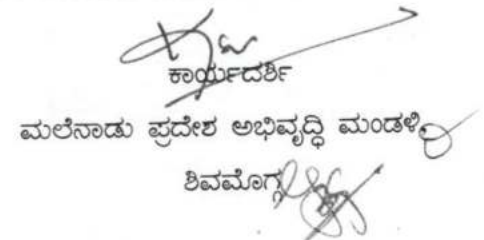 ಕಾರ್ಯದರ್ಶಿ
ಮಲೆನಾಡು ಪ್ರದೇಶ ಅಭಿವೃದ್ಧಿ ಮಂಡಳಿ
ಶಿವಮೊಗ್ಗ